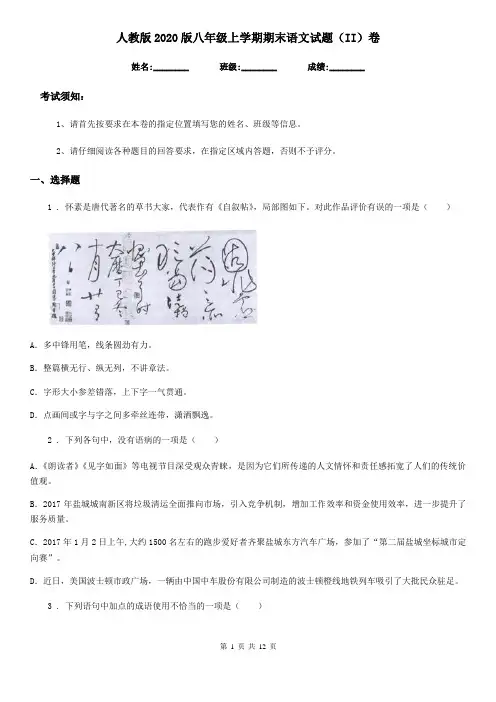 人教版2020版八年级上学期期末语文试题（II）卷
姓名:________ 班级:________ 成绩:________
考试须知：
1、请首先按要求在本卷的指定位置填写您的姓名、班级等信息。
2、请仔细阅读各种题目的回答要求，在指定区域内答题，否则不予评分。
一、选择题
1 . 怀素是唐代著名的草书大家，代表作有《自叙帖》，局部图如下。对此作品评价有误的一项是（ ）
A．多中锋用笔，线条圆劲有力。
B．整篇横无行、纵无列，不讲章法。
C．字形大小参差错落，上下字一气贯通。
D．点画间或字与字之间多牵丝连带，潇洒飘逸。
2 . 下列各句中，没有语病的一项是（ ）
A．《朗读者》《见字如面》等电视节目深受观众青睐，是因为它们所传递的人文情怀和责任感拓宽了人们的传统价
值观。
B．2017年盐城城南新区将垃圾清运全面推向市场，引入竞争机制，增加工作效率和资金使用效率，进一步提升了
服务质量。
C．2017年1月2日上午,大约1500名左右的跑步爱好者齐聚盐城东方汽车广场，参加了“第二届盐城坐标城市定
向赛”。
D．近日，美国波士顿市政广场，一辆由中国中车股份有限公司制造的波士顿橙线地铁列车吸引了大批民众驻足。
3 . 下列语句中加点的成语使用不恰当的一项是（ ）
第 1 页 共 12 页